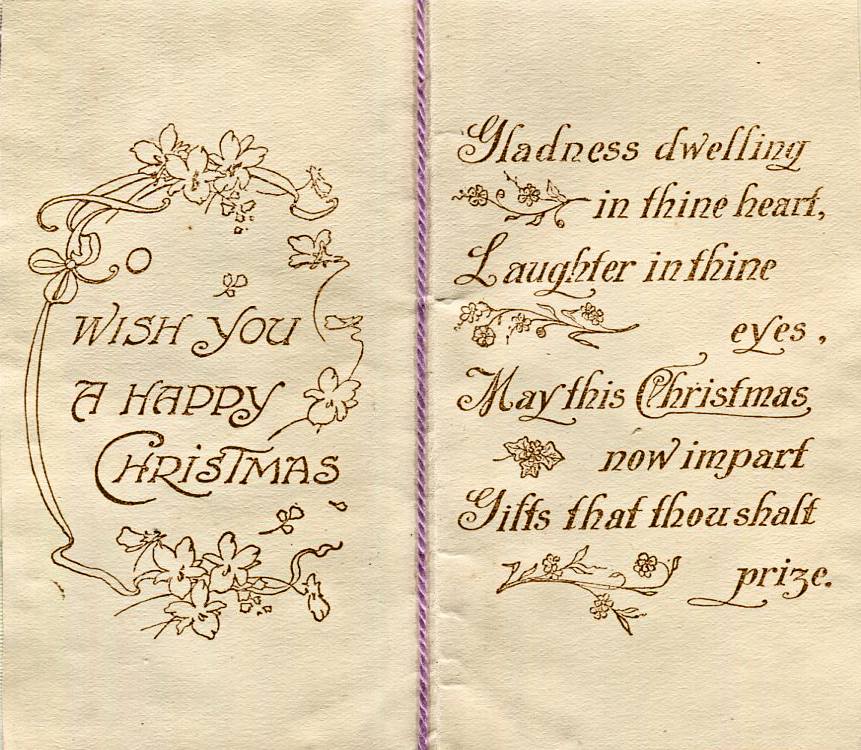 O
WISH YOU
A HAPPY
CHRISTMAS
Gladness dwelling
in thine heart,
Laughter in thine
eyes,
May this Christmas
now impart
Gifts that thou shalt
prize.